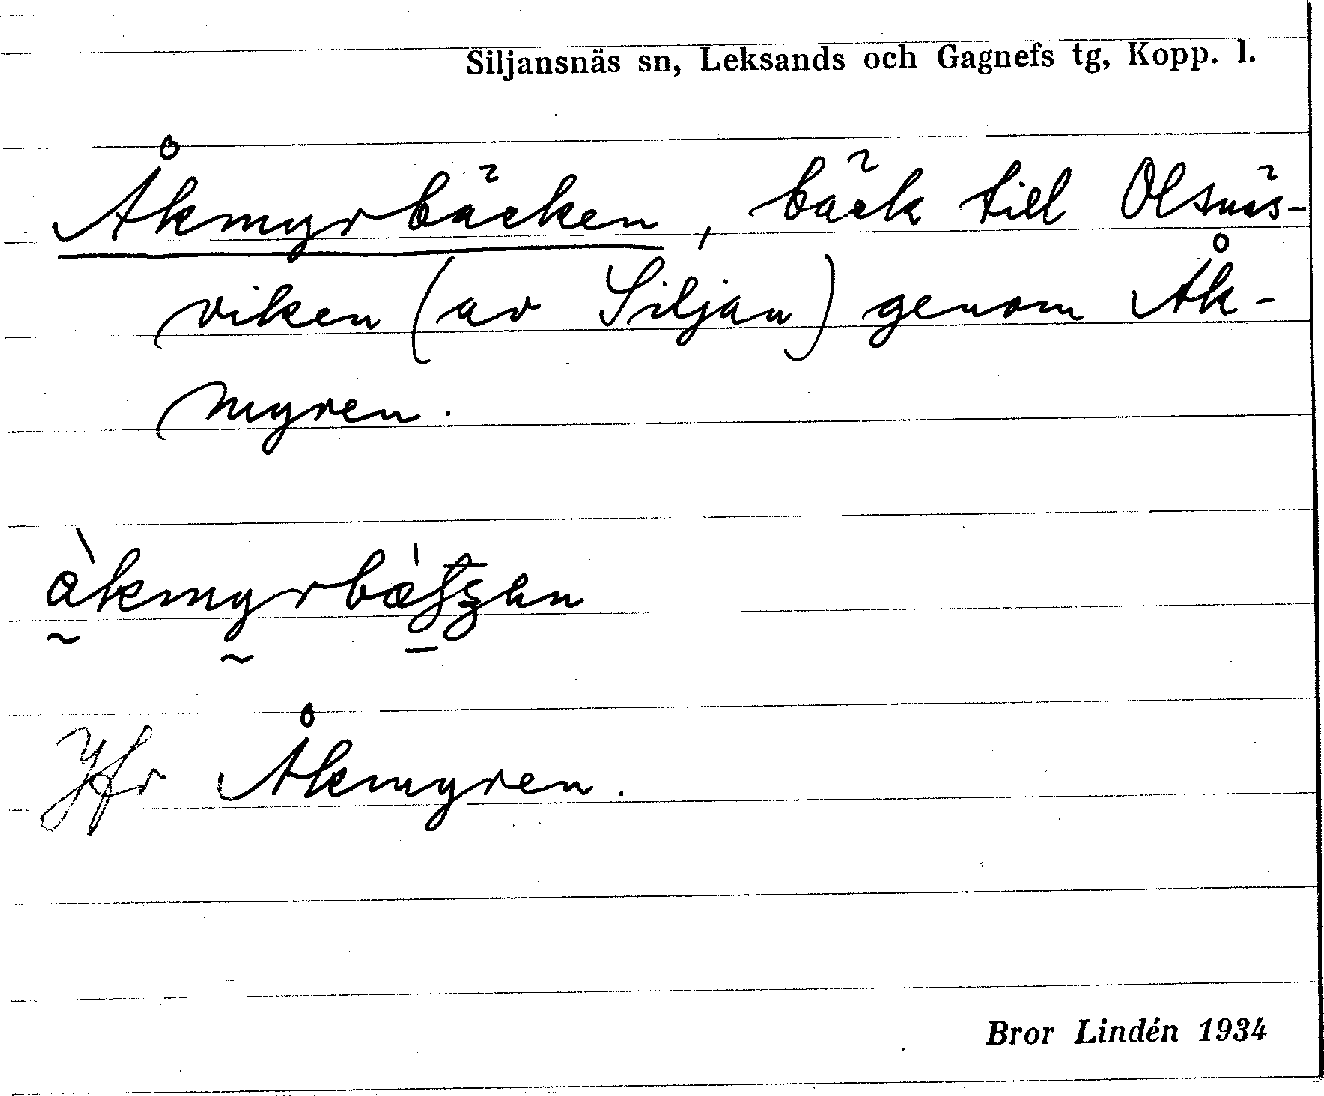 Siljansnäs sn, Leksands och Gagnefs tg, Kopp. l.
Åkmyrbäcken, bäck till Olsnäs-
viken (av Siljan) genom Åk-
myren.
Jfr Åkmyren.
Bror Lindén 1934